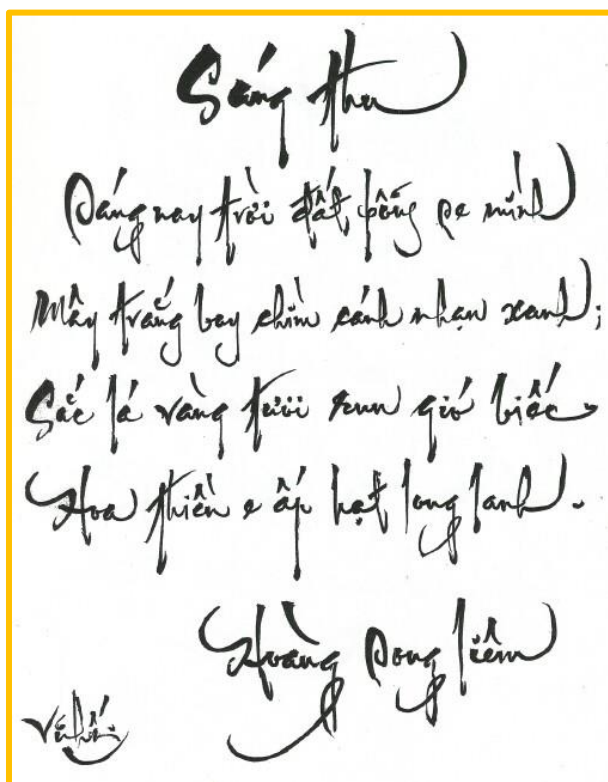 Sáng thu
Sáng nay trời đất bỗng se mình
Mây trắng bay chìm cánh nhạn xanh;
Sắc lá vàng tươi run gió biếc.
Hoa thiền e ấp hạt long lanh.
Hoàng Song Liêm
Vũ Hối